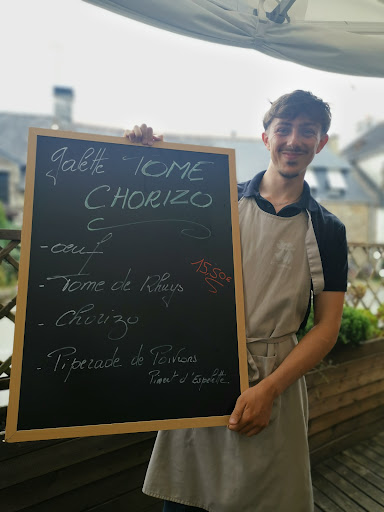 galette TOME
CHORIZO
- oeuf
- Tome de Rhuys
15.50€
- Chorizo
- Piperade de Poivrons
Piment d'Espelette